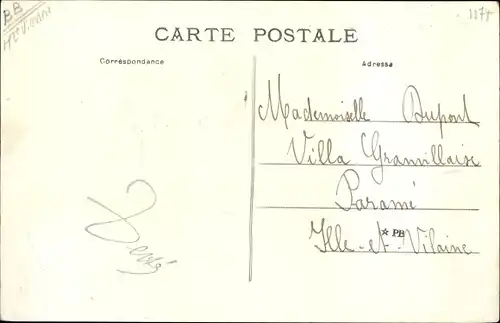 BB
CARTE POSTALE
Correspondance
Adresse
Mademoiselle Dupont
Villa Granvillaise
Paramé
Ille-et-Vilaine
* PB